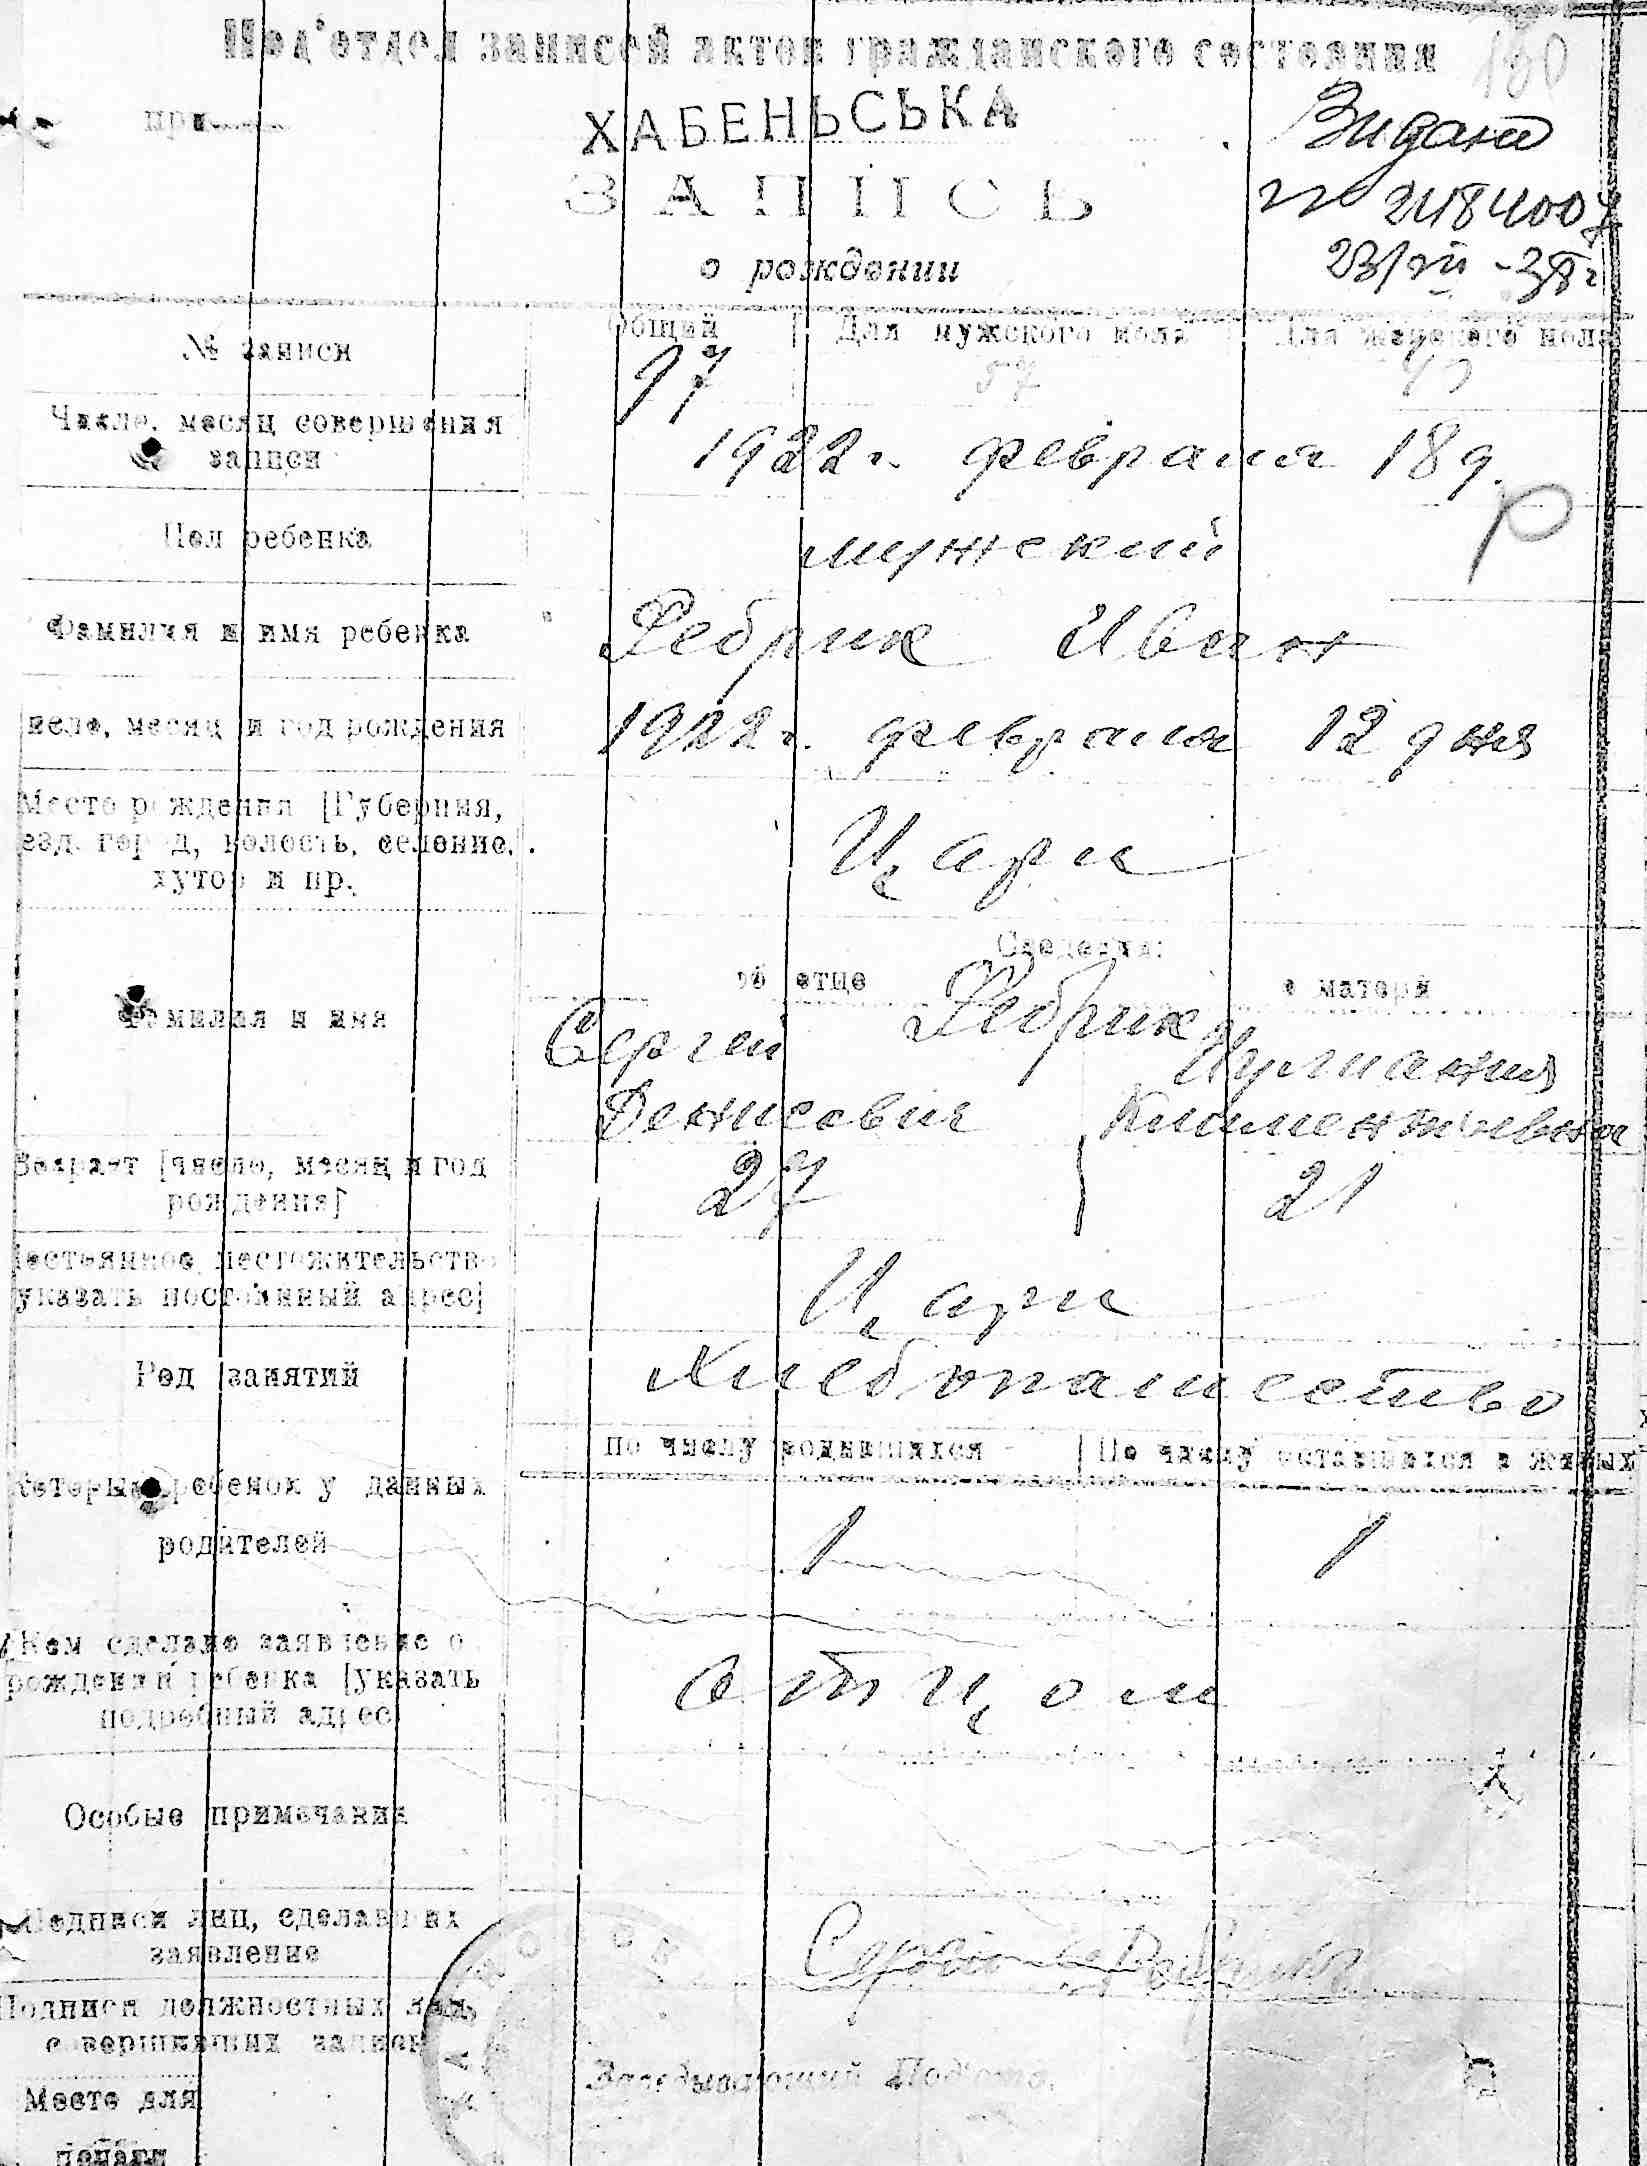 Под'отдел записей актов гражданского состояния
при
ХАБЕНЬСЬКА
ЗАПИСЬ
о рождении
Видано
23/VII -38 г
№ записи
Общий
Для мужского пола
Для женского пола
97
57
Число, месяц совершения
записи
1922 г. февраля 18 д.
Пол ребенка
мужский
Р
Фамилия и имя ребенка
Ребрик Иван
число, месяц и год рождения
1922 г. февраля 12 дня
Место рождения [Губерния,
уезд, город, волость, селение,
хутор и пр.
Цари
Сведения:
об отце
о матери
Фамилия и имя
Ребрик
Сергей
Денисович
Климентиевна
Возраст [число, месяц и год
рождения]
27
21
Постоянное местожительство
указать постоянный адрес]
Цари
Род занятий
Хлебопашество
По числу родившихся
По числу оставшихся в живых
Который ребенок у данных
родителей
1
1
Кем сделано заявление о
рождении ребенка [указать
подробный адрес
отцом
Особые примечания
Подписи лиц, сделавших
заявление
Подписи должностных лиц
совершивших записи
Заведывающий Под'отд.
Место для
печати